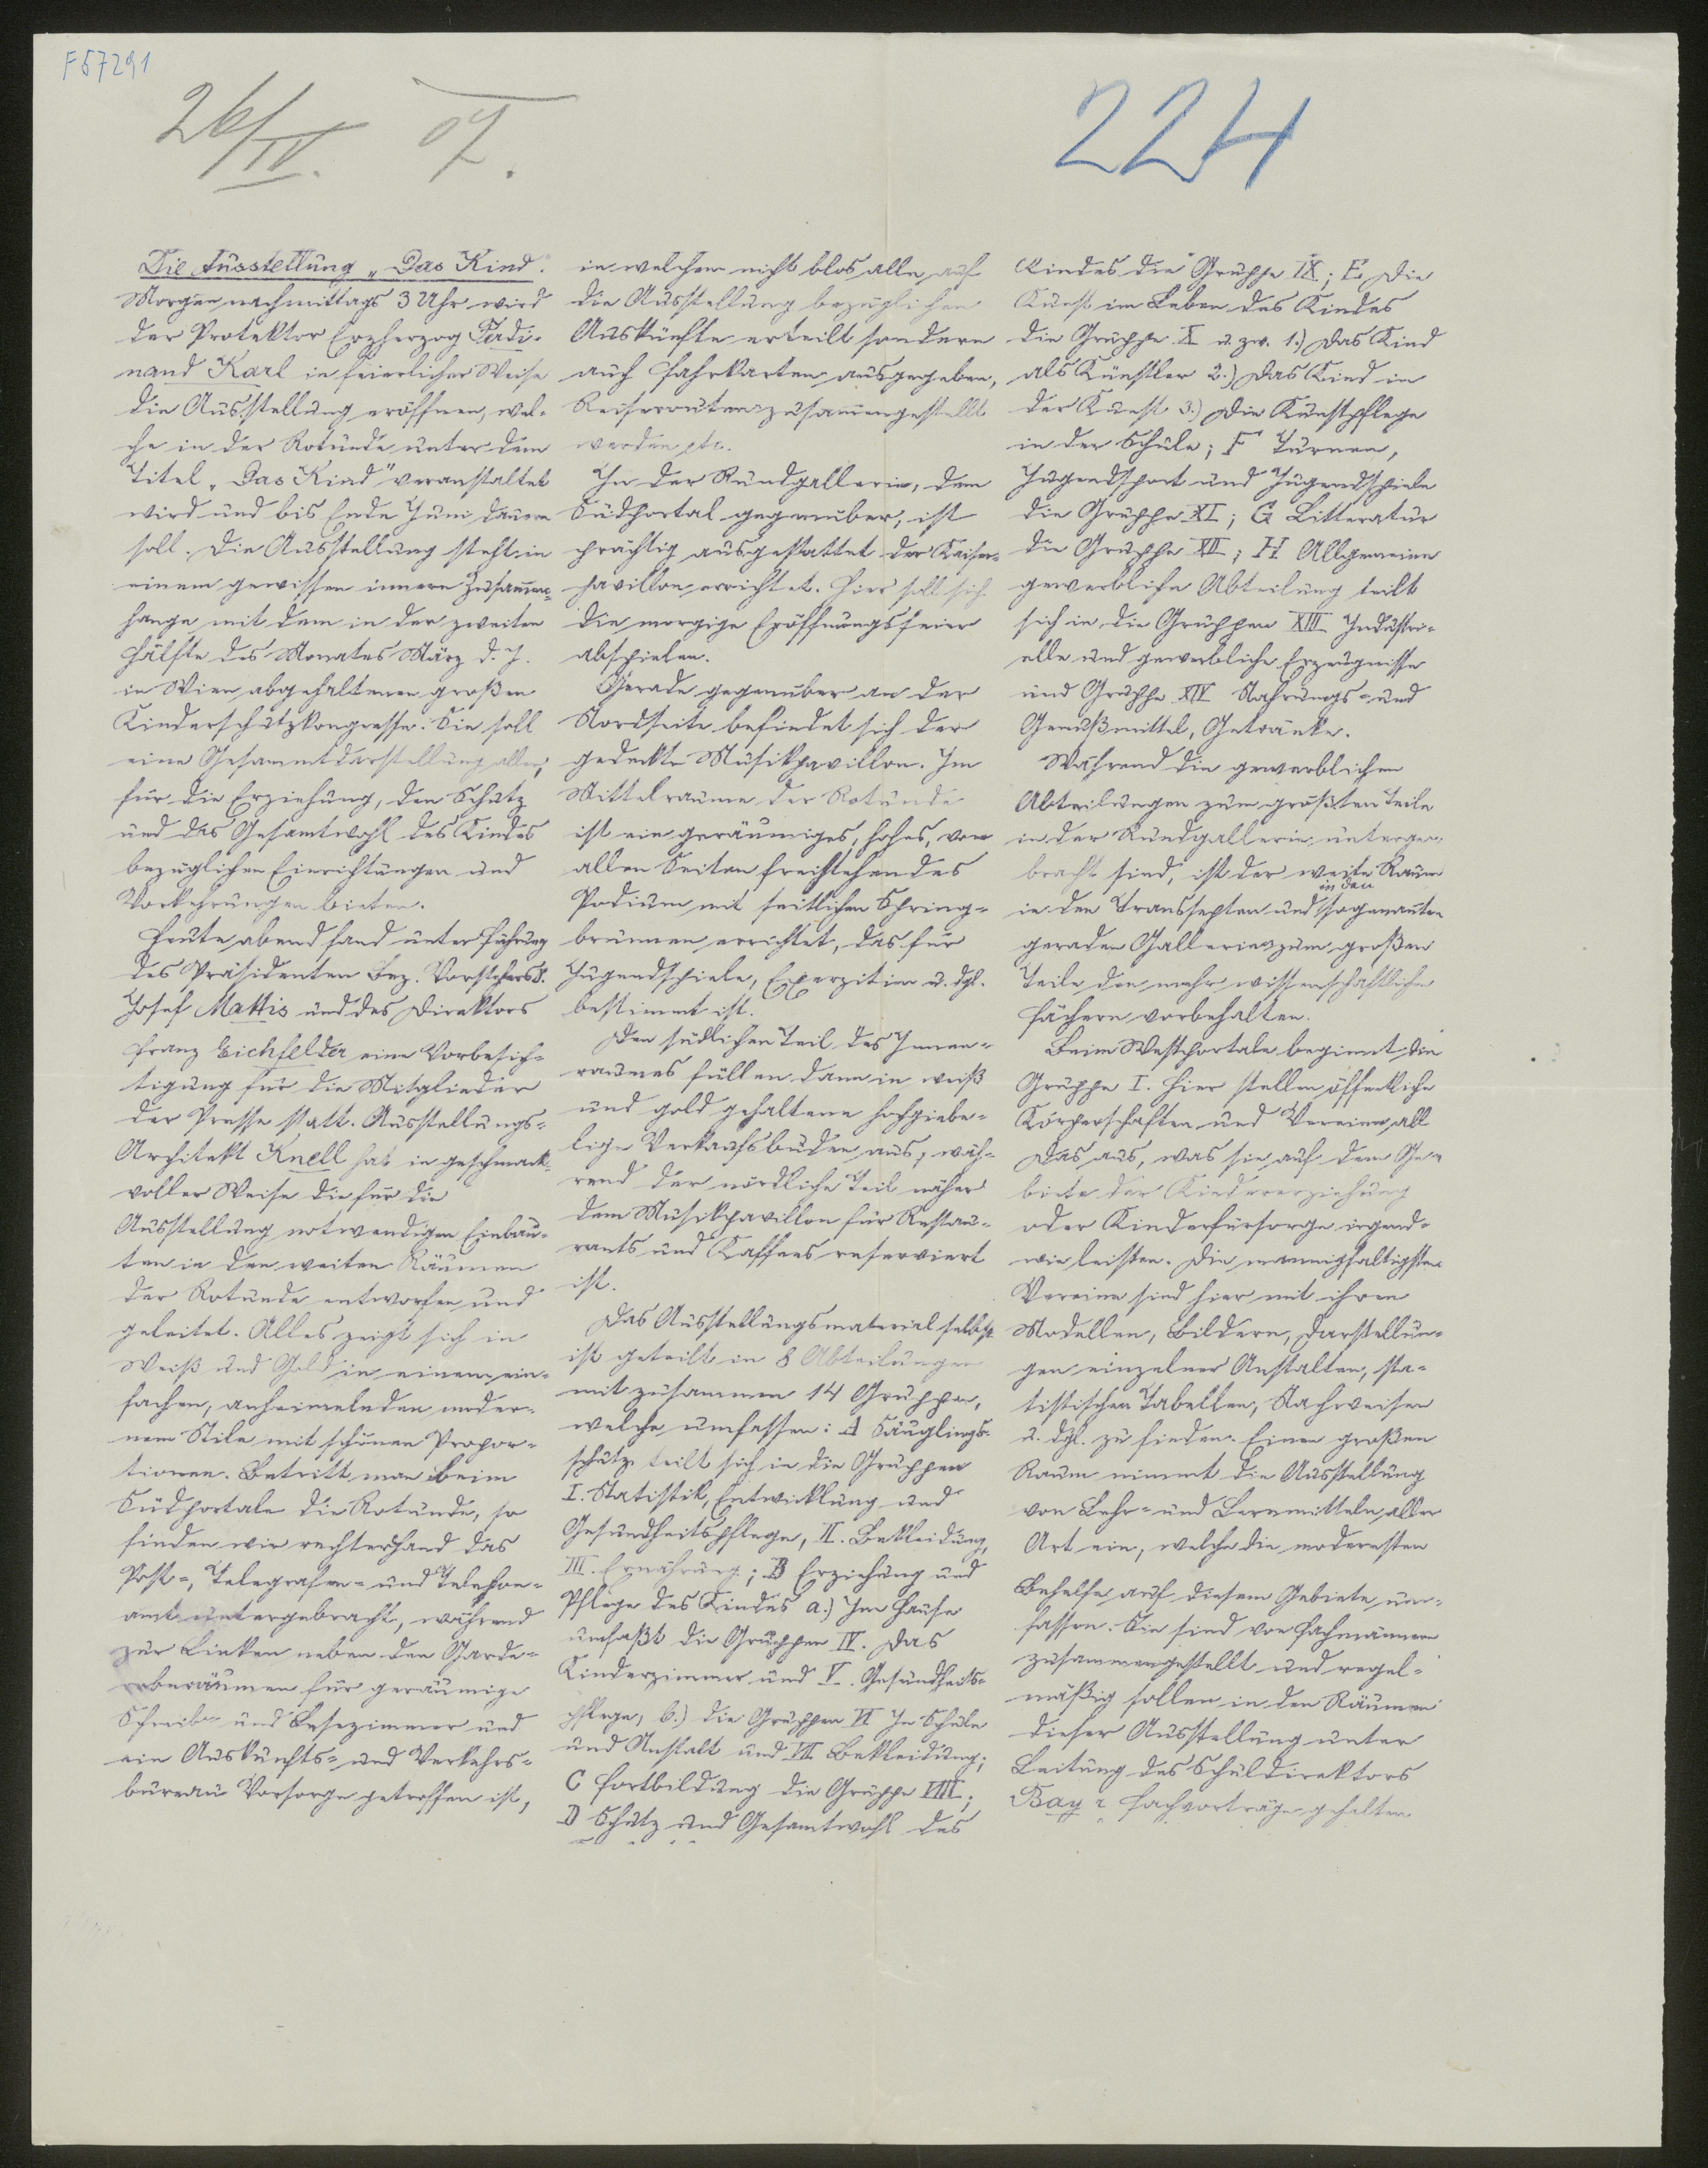 F57291
26/IV. 07.
224
Die Ausstellung „Das Kind.
Morgen nachmittags 3 Uhr wird
der Protektor Erzherzog Ferdi-
nand Karl in feierlicher Weise
die Ausstellung eröffnen, wel-
che in der Rotunde unter dem
Titel „Das Kind" veranstaltet
wird und bis Ende Juni dauern
soll. Die Ausstellung steht in
einem gewissen innern Zusammen-
hange mit dem in der zweiten
Hälfte des Monates März d. J.
in Wien abgehaltenen großen
Kinderschutzkongresse. Sie soll
eine Gesammtdarstellung aller,
für die Erziehung, den Schutz
und das Gesamtwohl des Kindes
bezüglichen Einrichtungen und
Vorkehrungen bieten.
Heute abend fand unter Führung
des Präsidenten Bez. Vorstehers
Josef Mattis und des Direktors
Franz Eichfelder eine Vorbesich-
tigung für die Mitglieder
der Presse statt. Ausstellungs-
Architekt Knell hat in geschmack-
voller Weise die für die
Ausstellung notwendigen Einbau-
ten in den weiten Räumen
der Rotunde entworfen und
geleitet. Alles zeigt sich in
Weiß und Gold in einem ein-
fachen, anheimelnden moder-
nem Stile mit schönen Propor-
tionen. Betritt man beim
Südportale die Rotunde, so
finden wir rechterhand das
Post-, Telegrafen- und Telefon-
amt untergebracht, während
zur Linken neben den Garde-
roberäumen für geräumige
Schreib- und Lesezimmer und
ein Auskunfts- und Verkehrs-
bureau Vorsorge getroffen ist,
in welchem nicht blos alle auf
die Ausstellung bezüglichen
Auskünfte erteilt sondern
auch Fahrkarten ausgegeben,
Reiserouten zusammengestellt
werden etc.
In der Rundgallerie, dem
Südportal gegenüber, ist
prächtig ausgestattet der Kaiser-
pavillon errichtet. Hier soll sich
die morgige Eröffnungsfeier
abspielen.
Gerade gegenüber an der
Nordseite befindet sich der
gedeckte Musikpavillon. Im
Mittelraume der Rotunde
ist ein geräumiges, hohes, von
allen Seiten freistehendes
Podium mit seitlichen Spring-
brunnen errichtet, das für
Jugendspiele, Exerzitien u. dgl.
bestimmt ist.
Den südlichen Teil des Innen-
raumes füllen dann in weiß
und gold gehaltene hochgiebe-
lige Verkaufsbuden aus, wäh-
rend der nördliche Teil näher
dem Musikpavillon für Restau-
rants und Kaffees reserviert
ist.
Das Ausstellungsmaterial selbst
ist geteilt in 8 Abteilungen
mit zusammen 14 Gruppen,
welche umfassen: A Säuglings-
schutz teilt sich in die Gruppen
I. Statistik, Entwicklung und
Gesundheitspflege, II. Bekleidung,
III. Ernährung; B Erziehung und
Pflege des Kindes a.) Im Hause
umfaßt die Gruppen IV. Das
Kinderzimmer und V. Gesundheits-
pflege, b.) die Gruppen VI In Schule
und Anstalt und VII Bekleidung;
C Fortbildung die Gruppe VIII;
D Schutz und Gesamtwohl des
Kindes die Gruppe IX; E Die
Kunst im Leben des Kindes
die Gruppe X u. zw. 1.) Das Kind
als Künstler 2.) Das Kind in
der Kunst 3.) Die Kunstpflege
in der Schule; F Turnen,
Jugendsport und Jugendspiele
die Gruppe XI; G Litteratur
die Gruppe XII; H Allgemeine
gewerbliche Abteilung teilt
sich in die Gruppen XIII Industri-
elle und gewerbliche Erzeugnisse
und Gruppe XIV Nahrungs- und
Genußmittel, Getränke.
Während die gewerblichen
Abteilungen zum größten Teile
in der Rundgallerie unterge-
bracht sind, ist der weite Raum
in den Transsepten und in den sogenannten
geraden Gallerien zum großen
Teile den mehr wissenschaftlichen
Fächern vorbehalten.
Beim Westportale beginnt die
Gruppe I. Hier stellen öffentliche
Körperschaften und Vereine all
das aus, was sie auf dem Ge-
biete der Kindererziehung
oder Kinderfürsorge irgend-
wie leisten. Die mannigfaltigsten
Vereine sind hier mit ihren
Modellen, Bildern, Darstellun-
gen einzelner Anstalten, sta-
tistischen Tabellen, Nachweisen
u. dgl. zu finden. Einen großen
Raum nimmt die Ausstellung
von Lehr- und Lernmitteln aller
Art ein, welche die modernsten
Behelfe auf diesem Gebiete um-
fassen. Sie sind von Fachmännern
zusammengestellt und regel-
mäßig sollen in den Räumen
dieser Ausstellung unter
Leitung des Schuldirektors
Bayr Fachvorträge gehalten